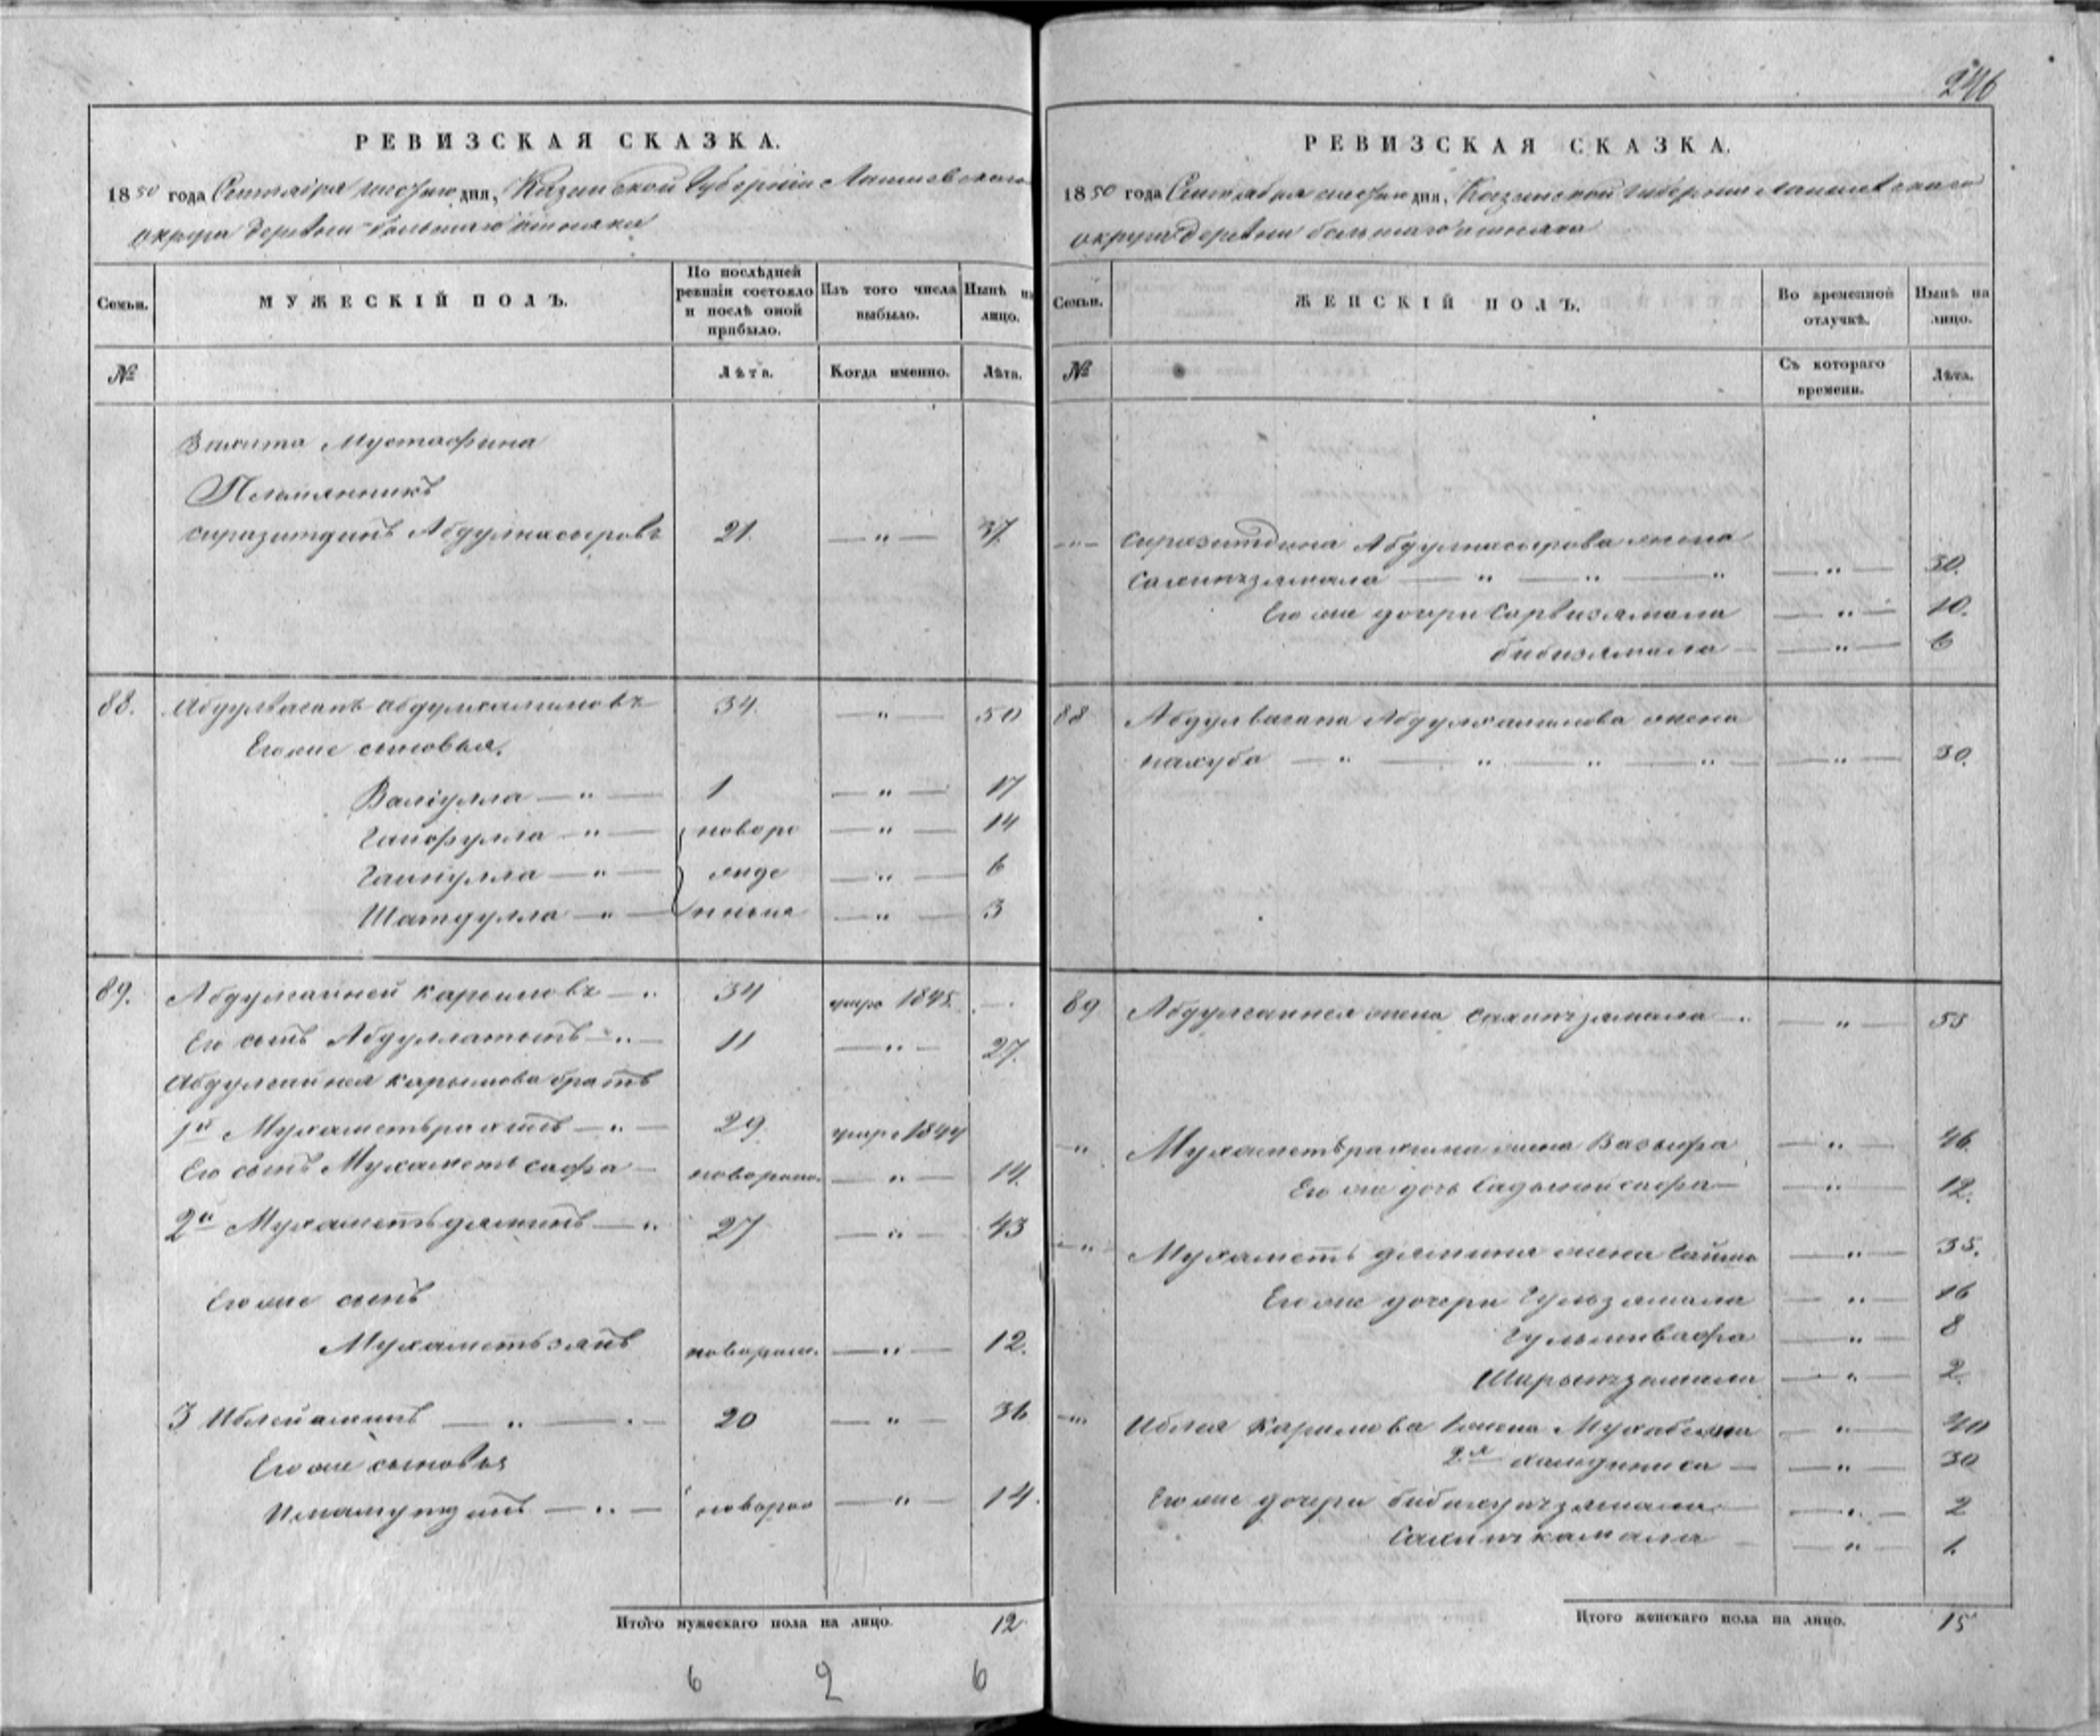 246
РЕВИЗСКАЯ СКАЗКА.
1850 года Сентября дня, Казанской Губернии Лаишевскаго
округа деревни большаго
Семьи.
МУЖЕСКІЙ ПОЛЪ.
По послѣдней ревизіи состояло и послѣ оной прибыло.
Изъ того числа выбыло.
Нынѣ на лицо.
№
Лѣта.
Когда именно.
Лѣта.
Мустафина
Племянникъ
Сиразитдинъ Абдулнасыровъ 21. — " — 37.
88. Абдулваганъ Абдулхалиловъ 34. — " — 50
Его же сыновья.
Валіулла — " — 1 — " — 17
Гайфулла — " — новоро — " — 14
— " — жде — " — 6
— " — нные — " — 3
89. Абдулганней Каримовъ — " 34 умре 1845. —
Его сынъ Абдуллатыпъ — " — 11 — " — 27.
Абдулганнея Карымова братъ
1й Мухаметьрахимъ — " — 29. умре 1844
Его сынъ Мухаметь сафа — новорож. — " — 14.
2й Мухаметьдяминъ — " 27 — " — 43
Его же сынъ
Мухаметьзянъ новорож. — " — 12.
3 Иблейаминъ — " — 20 — " — 36
Его же сыновья
— " — новорож — " — 14.
Итого мужескаго пола на лицо. 12
6 2 6
РЕВИЗСКАЯ СКАЗКА.
1850 года Сентября дня, Казанской Губернии Лаишевскаго
округа деревни большаго
Семьи.
ЖЕНСКІЙ ПОЛЪ.
Во временной отлучкѣ.
Нынѣ на лицо.
№
Съ котораго времени.
Лѣта.
— " — Сиразитдина Абдулнасырова жена
Сахипъзямала — " — " — " — " — 30.
Его же дочери Сарвизямала — " — 10.
бибизямала — — " — 6
88 Абдулвагапа Абдулхалилова жена
махуба — " — " — " — " — " — 30.
89 Абдулганнея жена Сахипъзямала — " — " — 55
" Мухаметьрахима жена Вазифа — " — 46.
Его же дочь — " — 12.
— " Мухаметь дямина жена — " — 35.
Его же дочери Гульзямала — " — 16
— " — 8
Шарыпъзямала — " — 2.
— " Иблея Каримова жена — " — 40
2я — — " — 30
Его же дочери — " — 2
Сахипъкамала — — " — 1.
Итого женскаго пола на лицо. 15